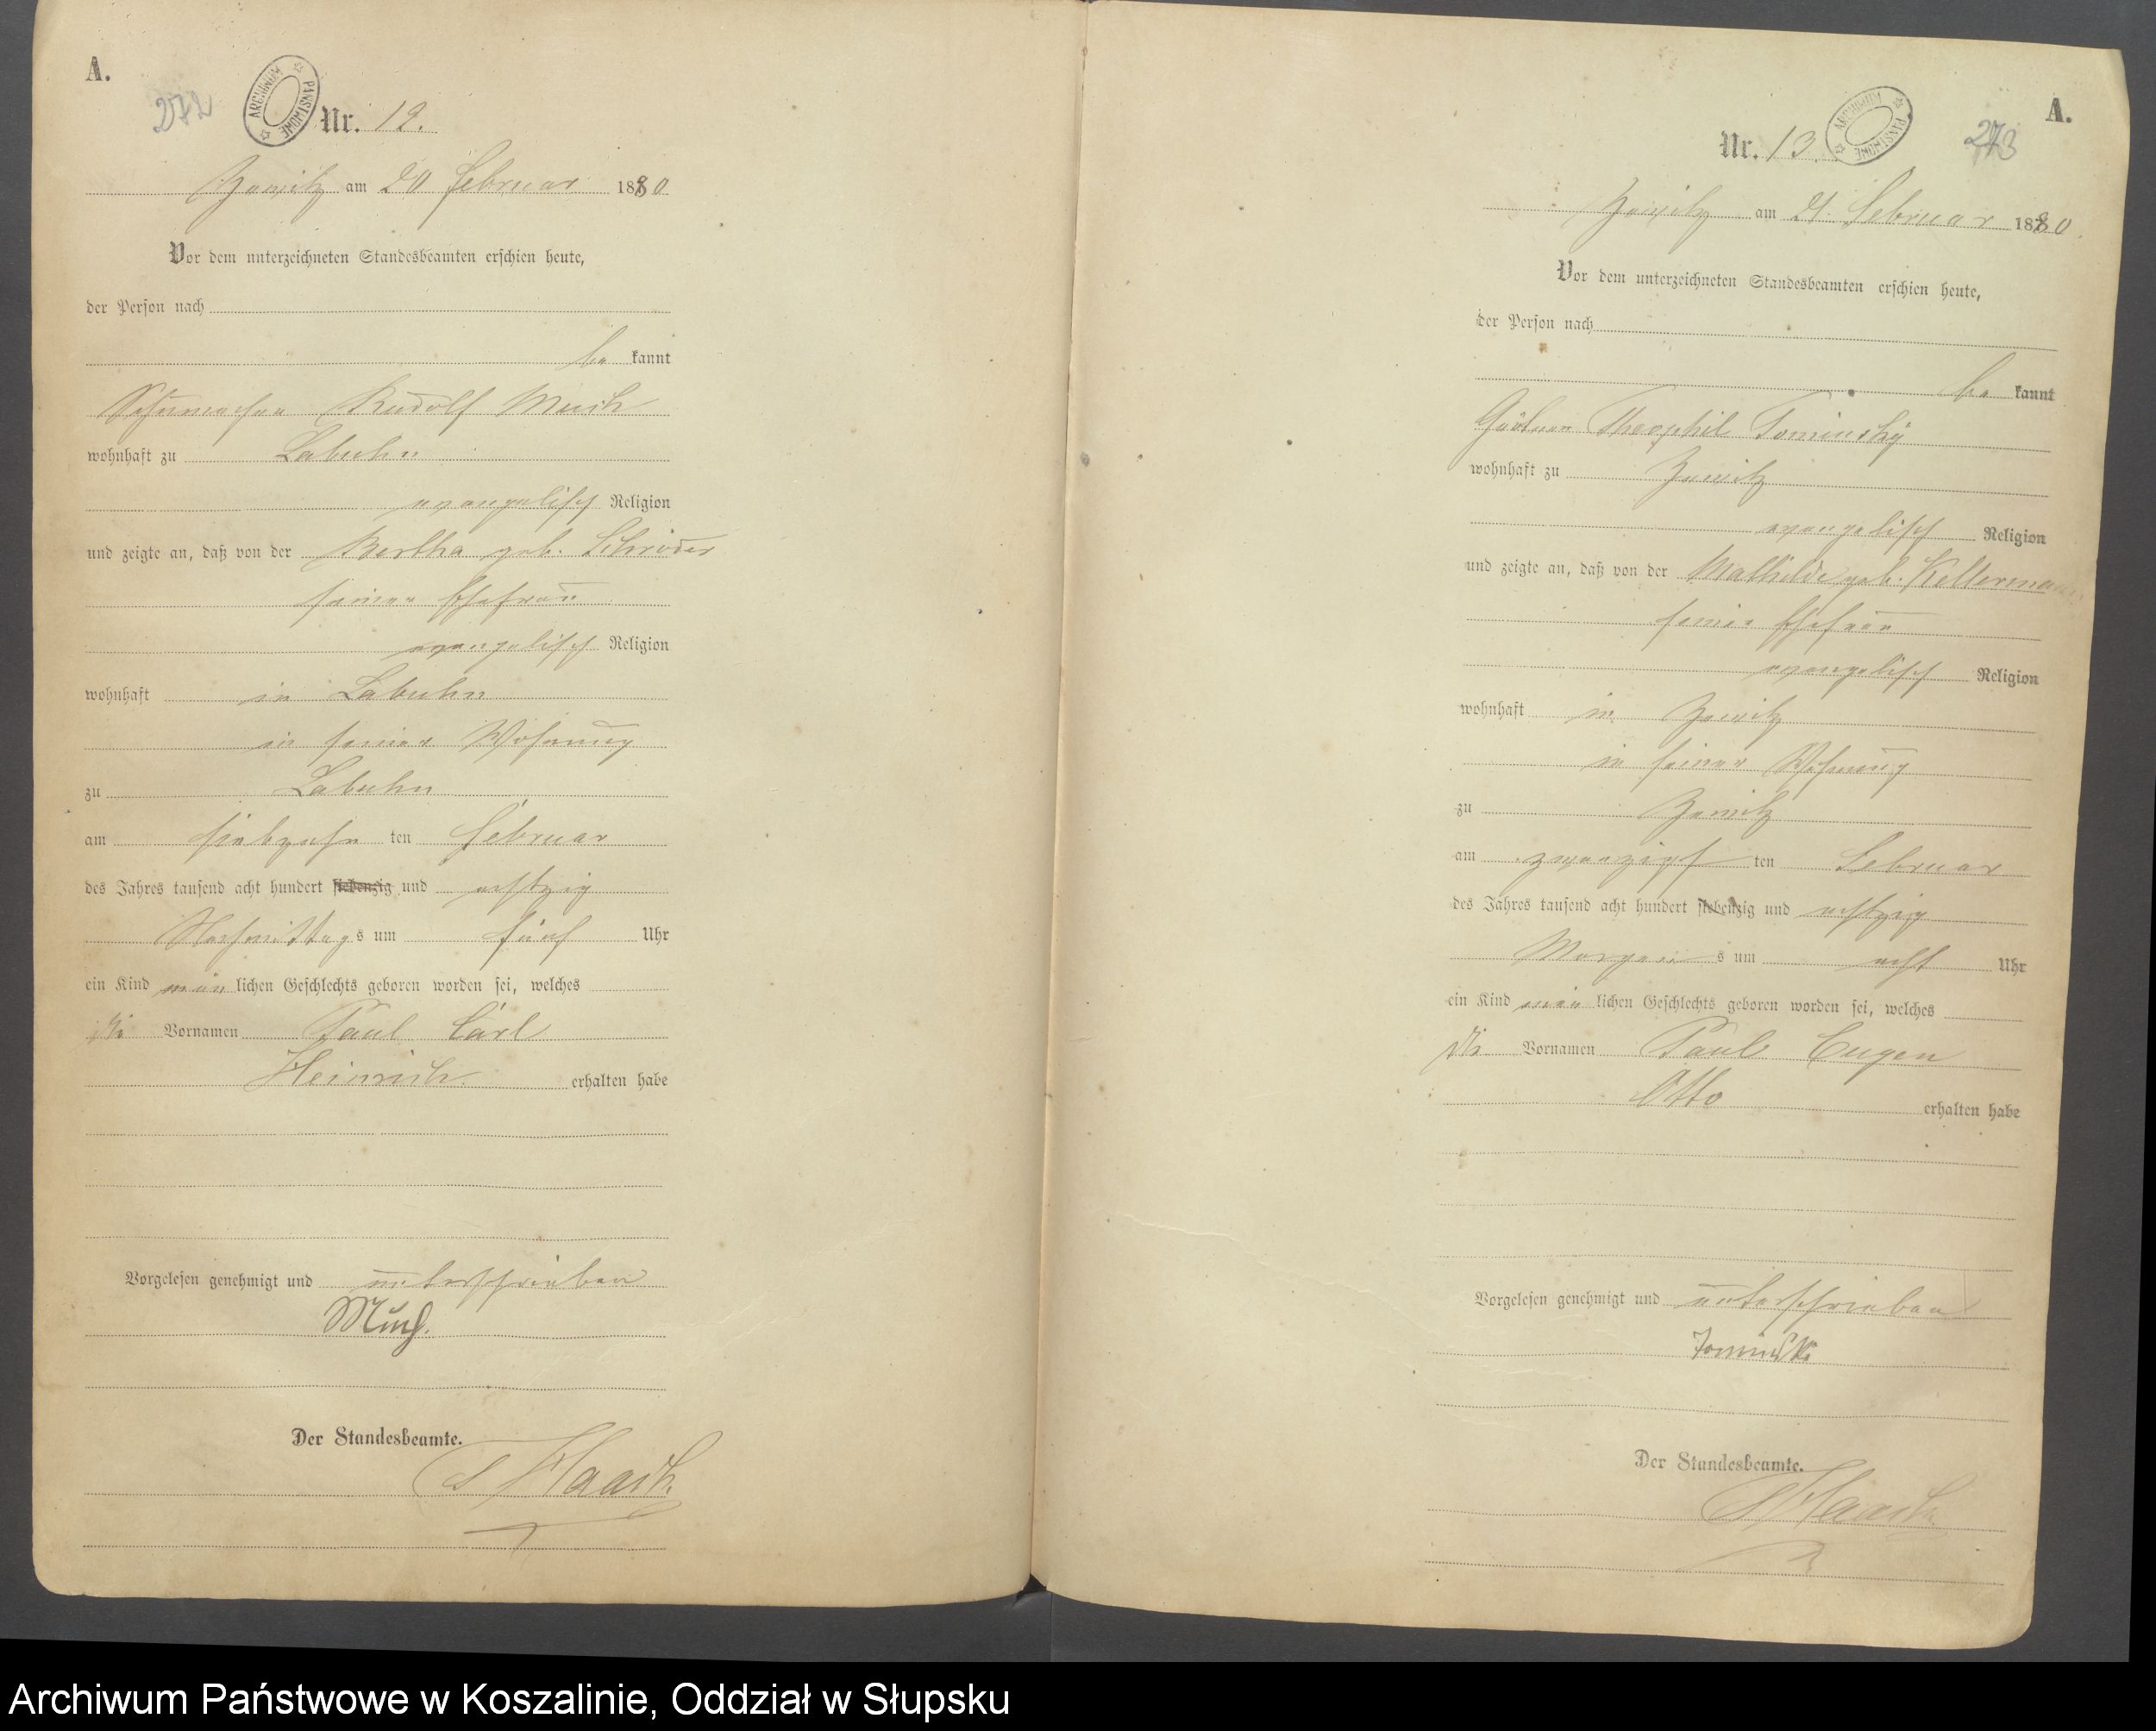 A.
272
ARCHIWUM PAŃSTWOWE
Nr. 12.
Zewitz am 20 Februar 1880
Vor dem unterzeichneten Standesbeamten erschien heute,
der Person nach
be kannt
Schumacher Rudolf Much
wohnhaft zu Labuhn
evangelisch Religion
und zeigte an, daß von der Bertha geb. Schröder
seiner Ehefrau
evangelisch Religion
wohnhaft in Labuhn
in seiner Wohnung
zu Labuhn
am siebzehn ten Februar
des Jahres tausend acht hundert siebenzig und achtzig
Nachmittags um fünf Uhr
ein Kind män lichen Geschlechts geboren worden sei, welches
die Vornamen Paul Carl
Heinrich erhalten habe
Vorgelesen genehmigt und unterschrieben
Much.
Der Standesbeamte.
Haack
A.
273
ARCHIWUM PAŃSTWOWE
Nr. 13.
Zewitz am 21. Februar 1880
Vor dem unterzeichneten Standesbeamten erschien heute,
der Person nach
be kannt
Gärtner Theophil Tominsky
wohnhaft zu Zewitz
evangelisch Religion
und zeigte an, daß von der Mathilde geb. Kellermann
seiner Ehefrau
evangelisch Religion
wohnhaft in Zewitz
in seiner Wohnung
zu Zewitz
am zwanzigs ten Februar
des Jahres tausend acht hundert siebenzig und achtzig
Morgens um acht Uhr
ein Kind män lichen Geschlechts geboren worden sei, welches
die Vornamen Paul Eugen
Otto erhalten habe
Vorgelesen genehmigt und unterschrieben
Tominski
Der Standesbeamte.
Haack
Archiwum Państwowe w Koszalinie, Oddział w Słupsku